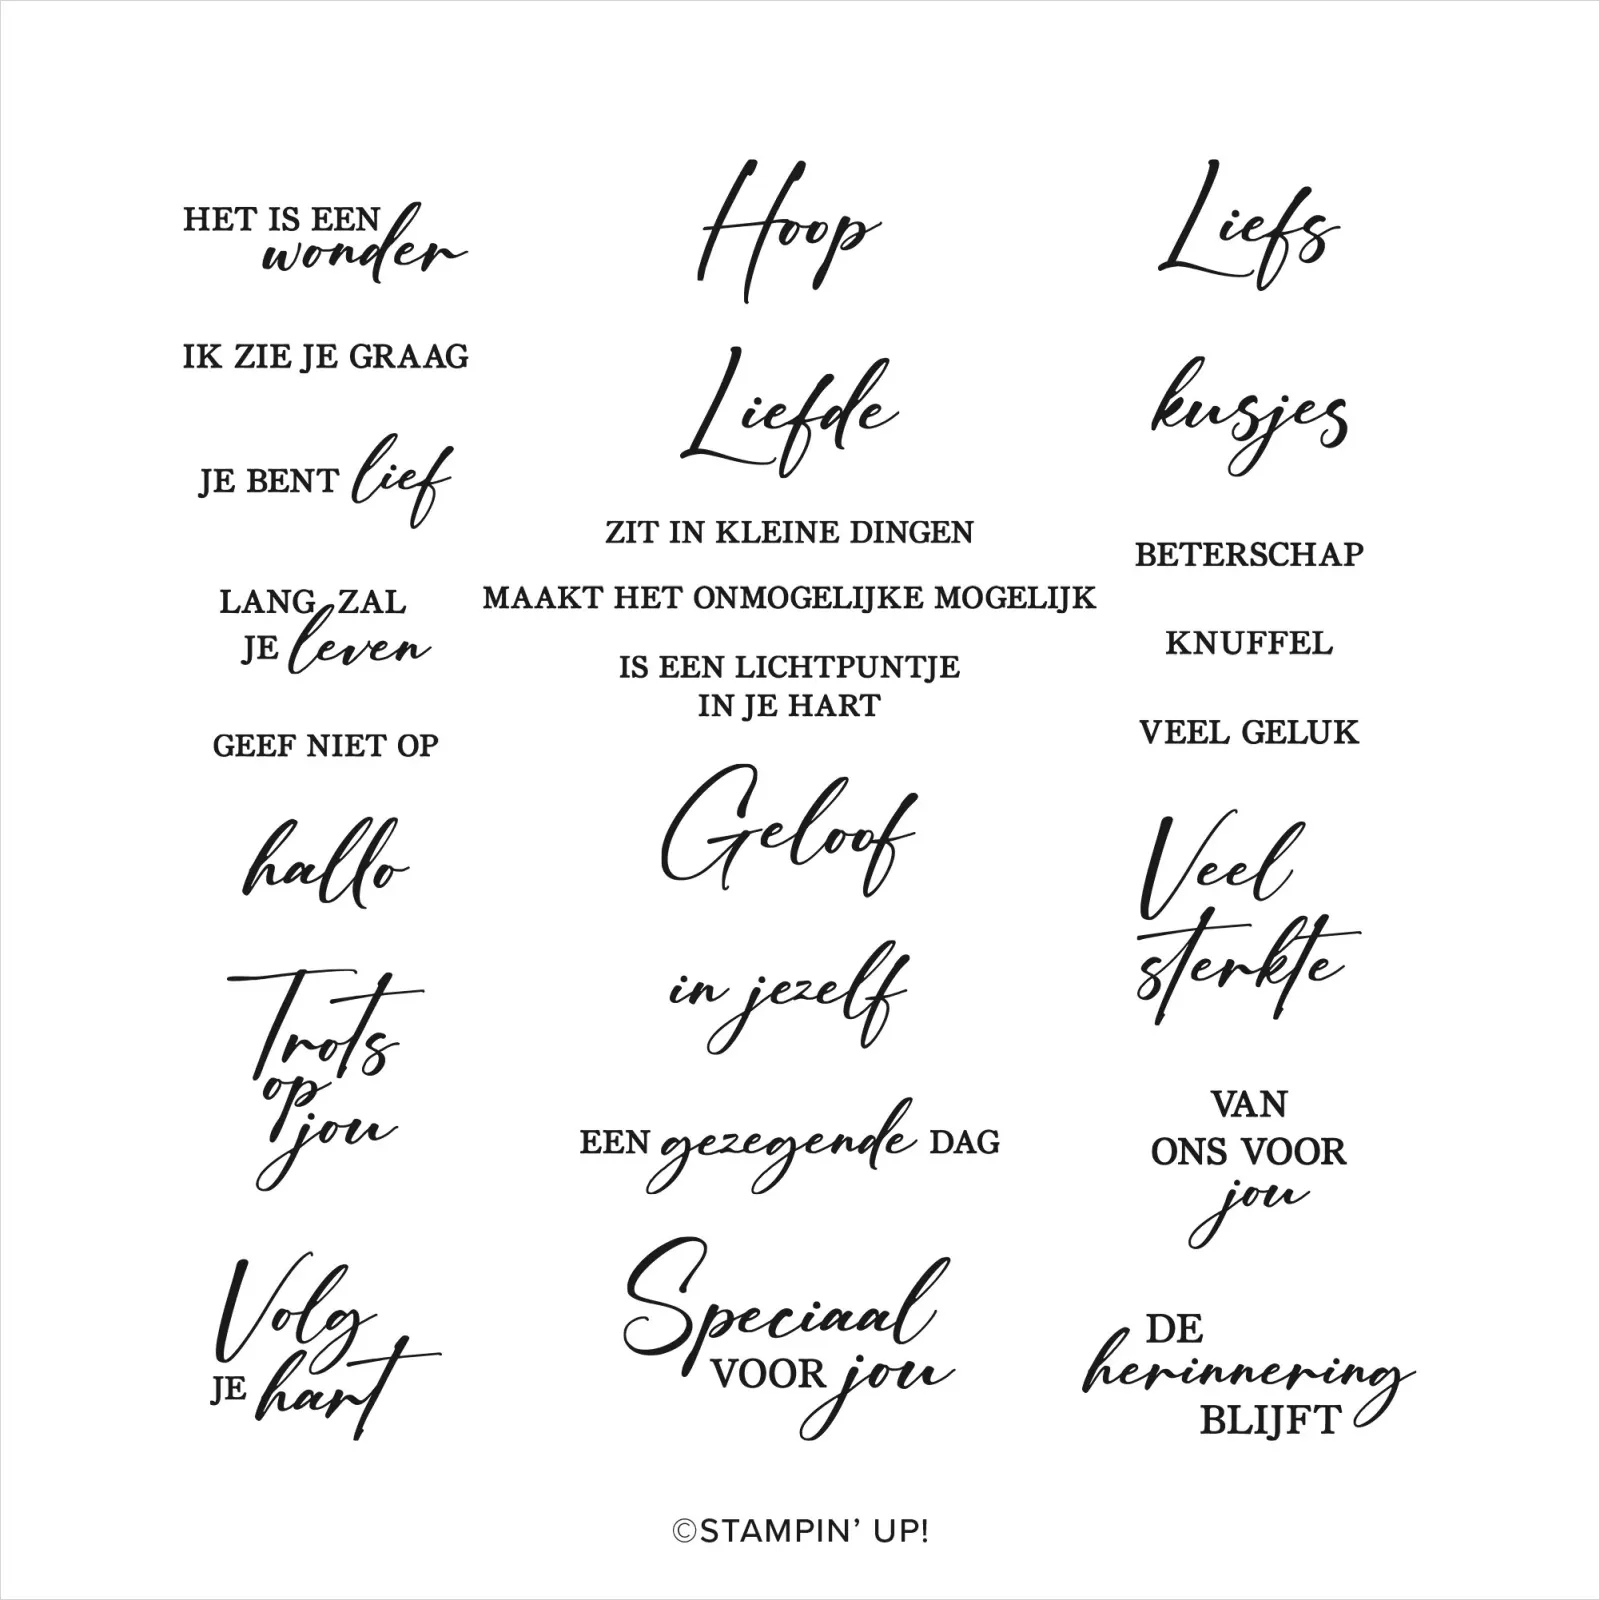 HET IS EEN
wonder
IK ZIE JE GRAAG
JE BENT lief
LANG ZAL
JE leven
GEEF NIET OP
hallo
Trots
op
jou
Volg
JE hart
Hoop
Liefde
ZIT IN KLEINE DINGEN
MAAKT HET ONMOGELIJKE MOGELIJK
IS EEN LICHTPUNTJE
IN JE HART
Geloof
in jezelf
EEN gezegende DAG
Speciaal
VOOR jou
Liefs
kusjes
BETERSCHAP
KNUFFEL
VEEL GELUK
Veel
sterkte
VAN
ONS VOOR
jou
DE
herinnering
BLIJFT
©STAMPIN’ UP!